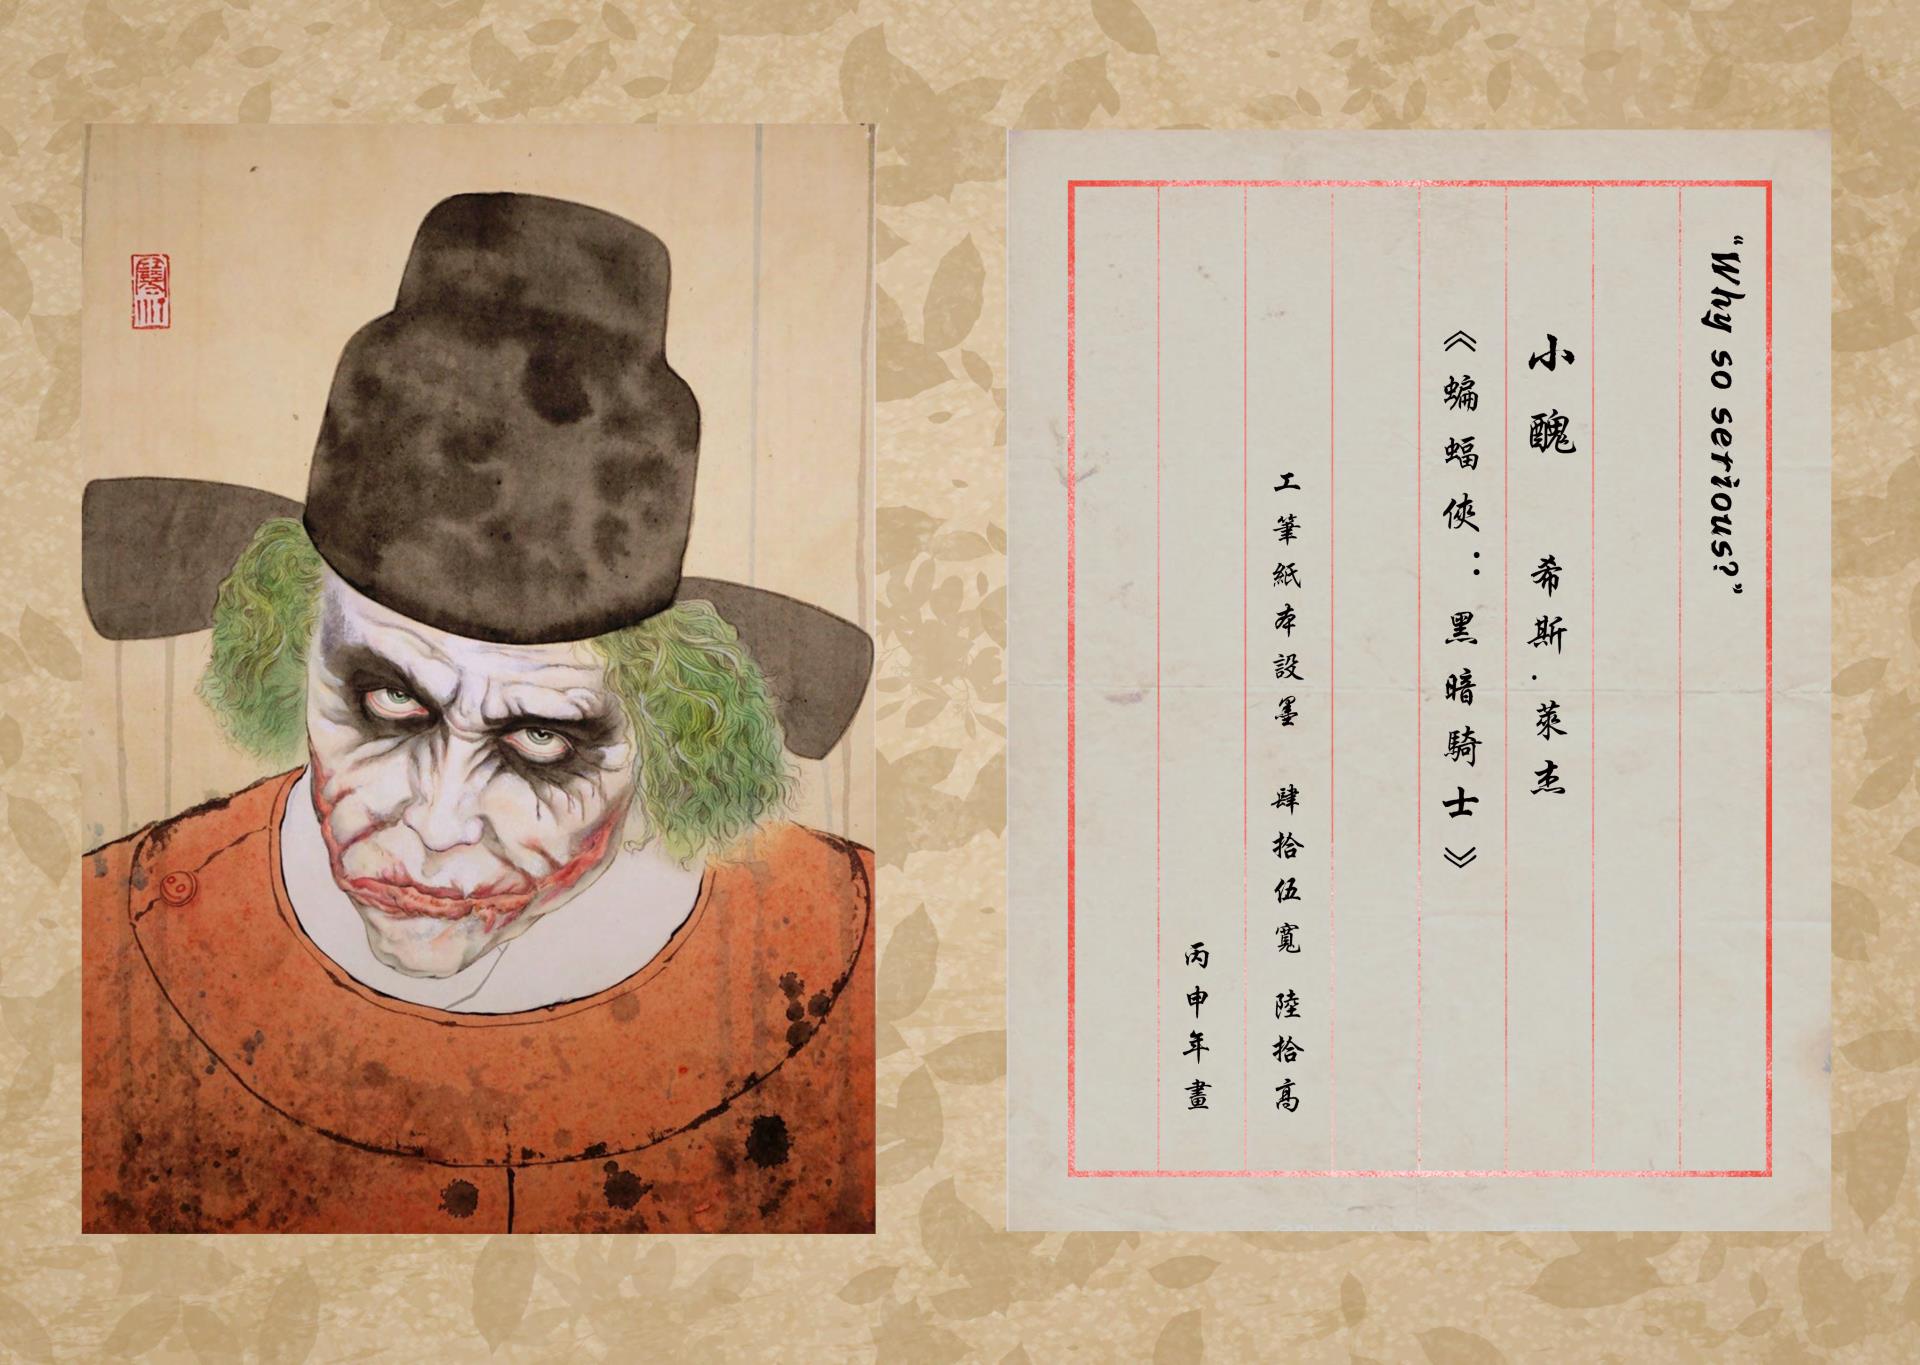 “Why so serious?”
小醜 希斯.萊杰
《蝙蝠俠：黑暗騎士》
工筆紙本設墨 肆拾伍寬 陸拾高
丙申年畫